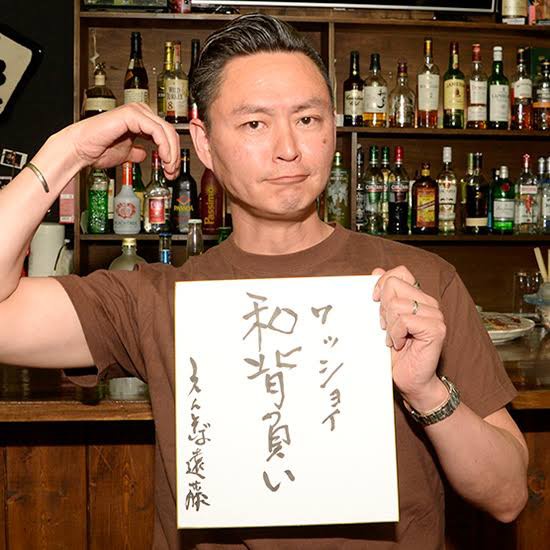 ワッショイ
和背負い
えんそば遠藤